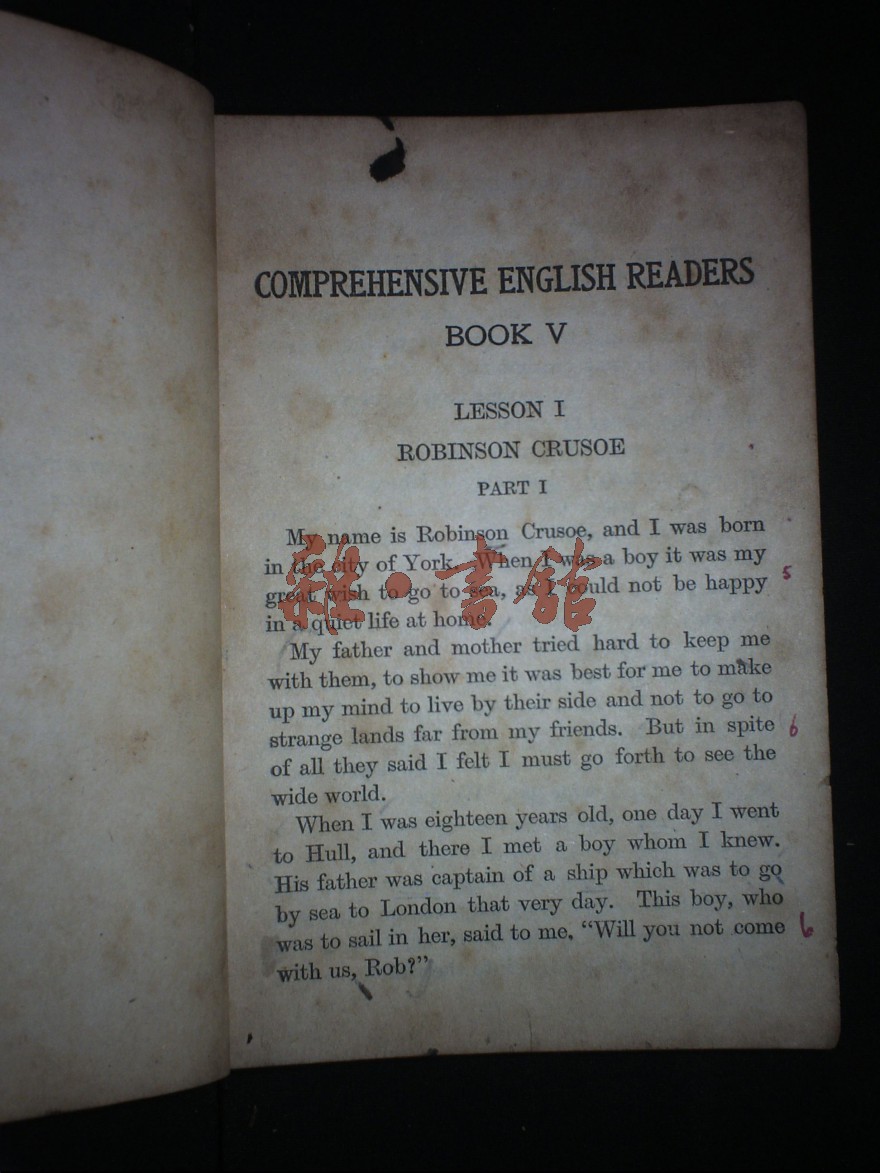 COMPREHENSIVE ENGLISH READERS
BOOK V
LESSON I
ROBINSON CRUSOE
PART I
My name is Robinson Crusoe, and I was born
in the city of York. When I was a boy it was my
great wish to go to sea, as I could not be happy
5
in a quiet life at home.
My father and mother tried hard to keep me
with them, to show me it was best for me to make
up my mind to live by their side and not to go to
strange lands far from my friends. But in spite
6
of all they said I felt I must go forth to see the
wide world.
When I was eighteen years old, one day I went
to Hull, and there I met a boy whom I knew.
His father was captain of a ship which was to go
by sea to London that very day. This boy, who
was to sail in her, said to me, "Will you not come
6
with us, Rob?"
雜·書館